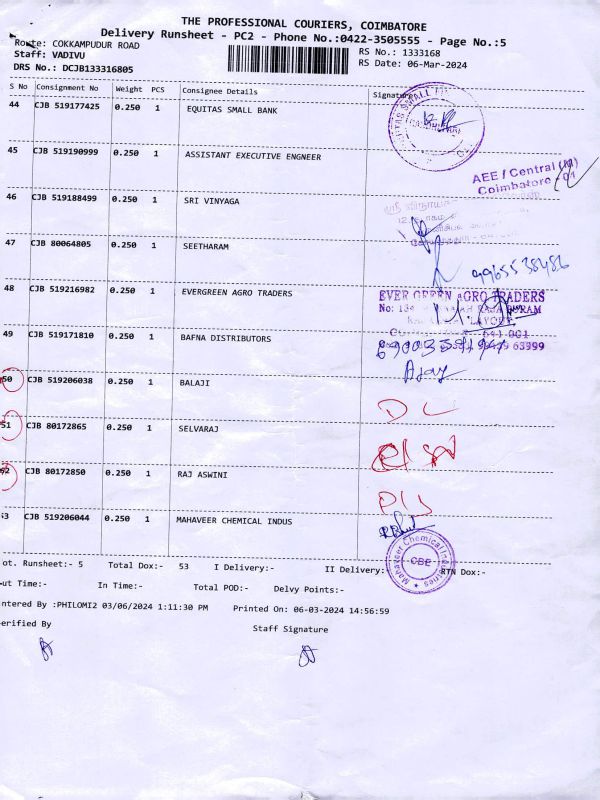 THE PROFESSIONAL COURIERS, COIMBATORE
Delivery Runsheet - PC2 - Phone No.:0422-3505555 - Page No.:5
Route: COKKAMPUDUR ROAD
Staff: VADIVU
RS No.: 1333168
RS Date: 06-Mar-2024
DRS No.: DCJB133316805
S No Consignment No Weight PCS Consignee Details Signature
44 CJB 519177425 0.250 1 EQUITAS SMALL BANK
45 CJB 519190999 0.250 1 ASSISTANT EXECUTIVE ENGNEER
AEE / Central (M)
Coimbatore - 01
46 CJB 519188499 0.250 1 SRI VINYAGA
47 CJB 80064805 0.250 1 SEETHARAM
9965538486
48 CJB 519216982 0.250 1 EVERGREEN AGRO TRADERS
EVER GREEN AGRO TRADERS
49 CJB 519171810 0.250 1 BAFNA DISTRIBUTORS
Ajay
50 CJB 519206038 0.250 1 BALAJI
DL
51 CJB 80172865 0.250 1 SELVARAJ
52 CJB 80172850 0.250 1 RAJ ASWINI
53 CJB 519206044 0.250 1 MAHAVEER CHEMICAL INDUS
Mahaveer Chemical Industries
CBE
ot. Runsheet:- 5 Total Dox:- 53 I Delivery:- II Delivery: RTN Dox:-
ut Time:- In Time:- Total POD:- Delvy Points:-
ntered By :PHILOMI2 03/06/2024 1:11:30 PM Printed On: 06-03-2024 14:56:59
erified By
Staff Signature